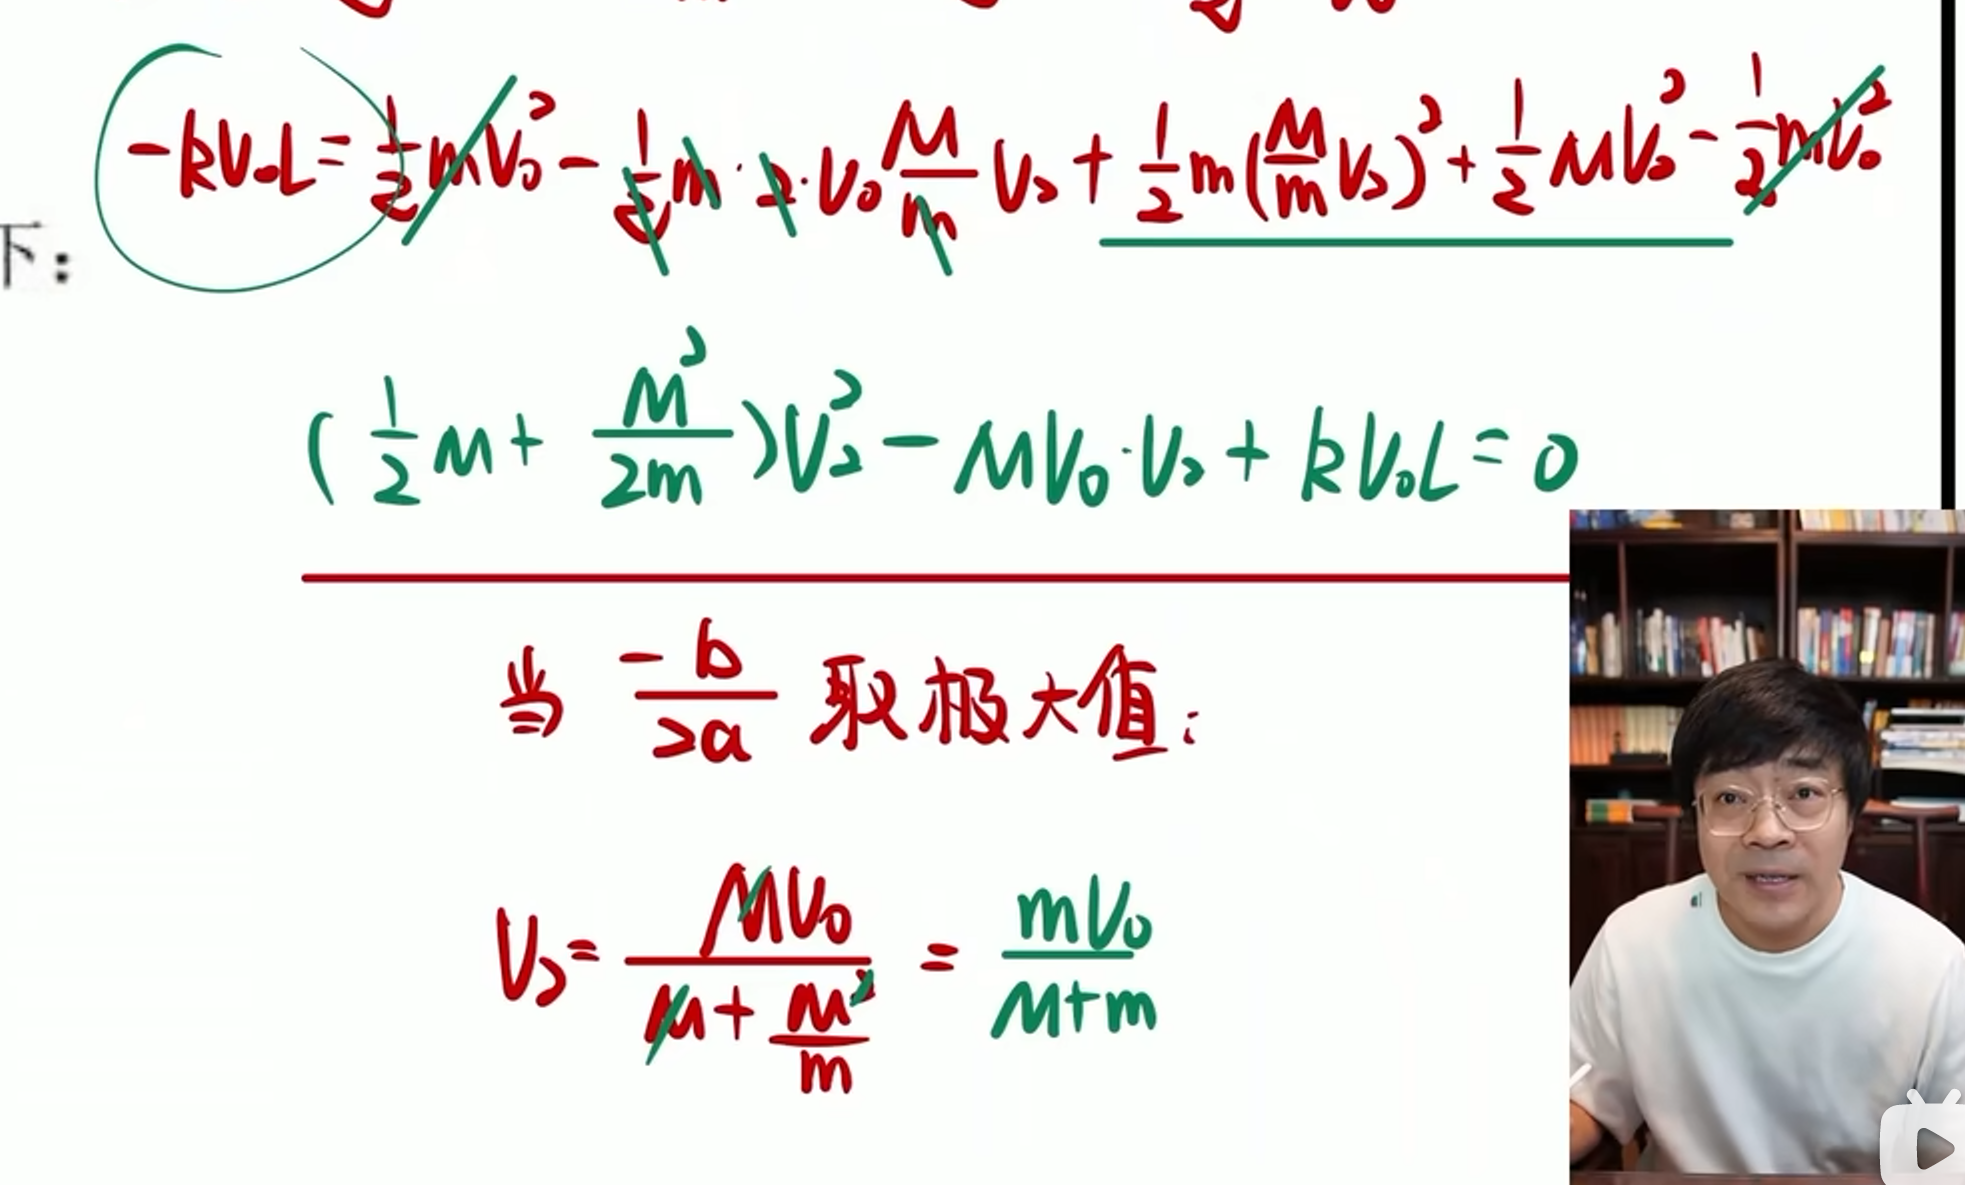 -kV₀L = ½mV₀² - ½m·2·V₀ M/m V₂ + ½m(M/m V₂)² + ½MV₂² - ½mV₀²
下：
(½M + M²/2m)V₂² - MV₀·V₂ + kV₀L = 0
当 -b/2a 取极大值：
V₂ = MV₀/(M + M²/m) = mV₀/(M+m)